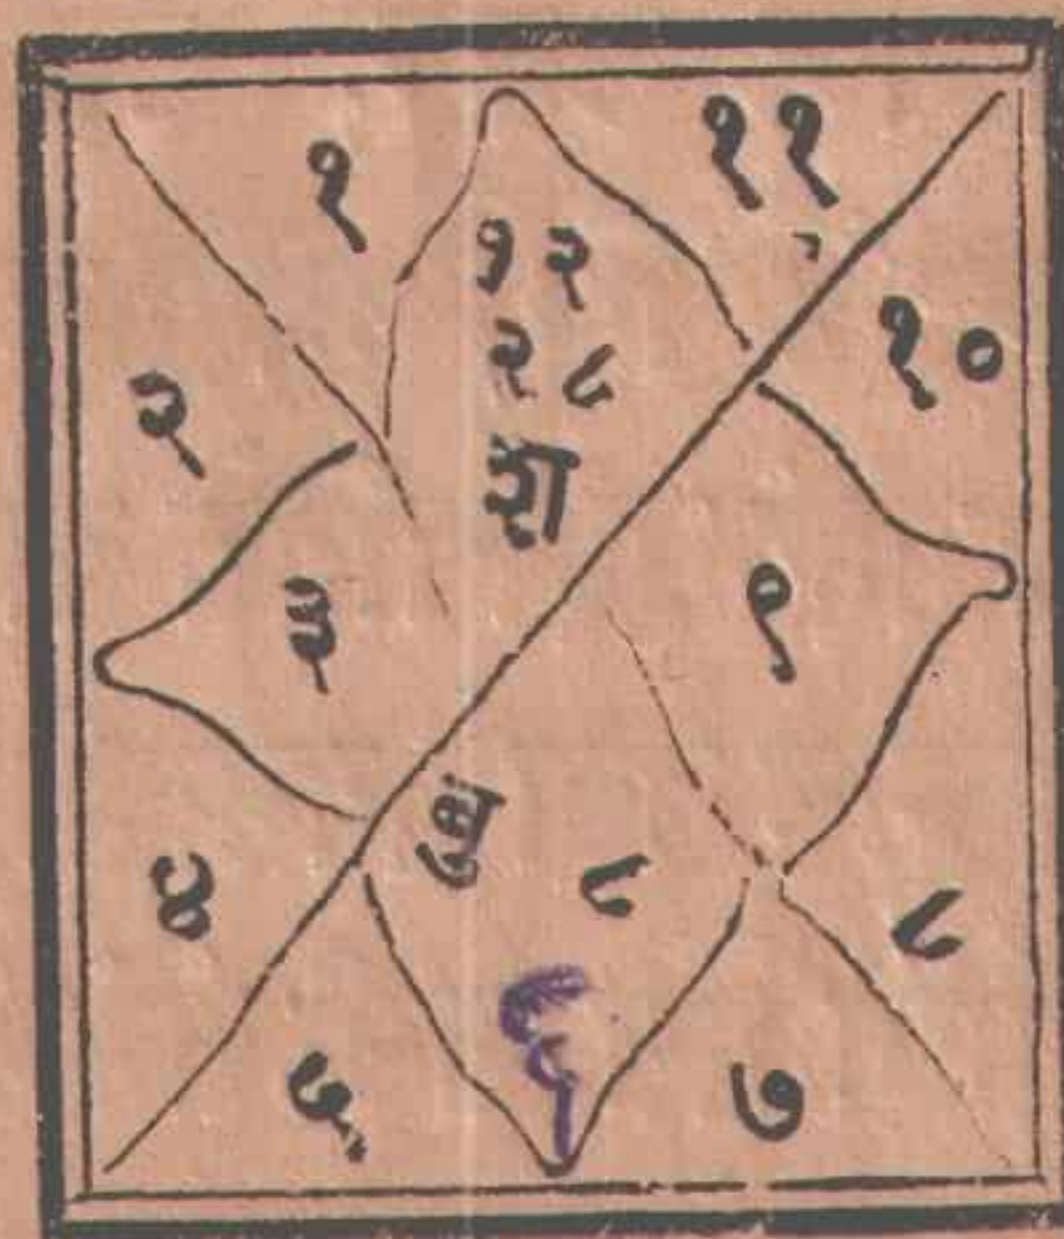 १
११
१२
२८
रा
१०
२
३
९
चं
८
४
८
६
५
७